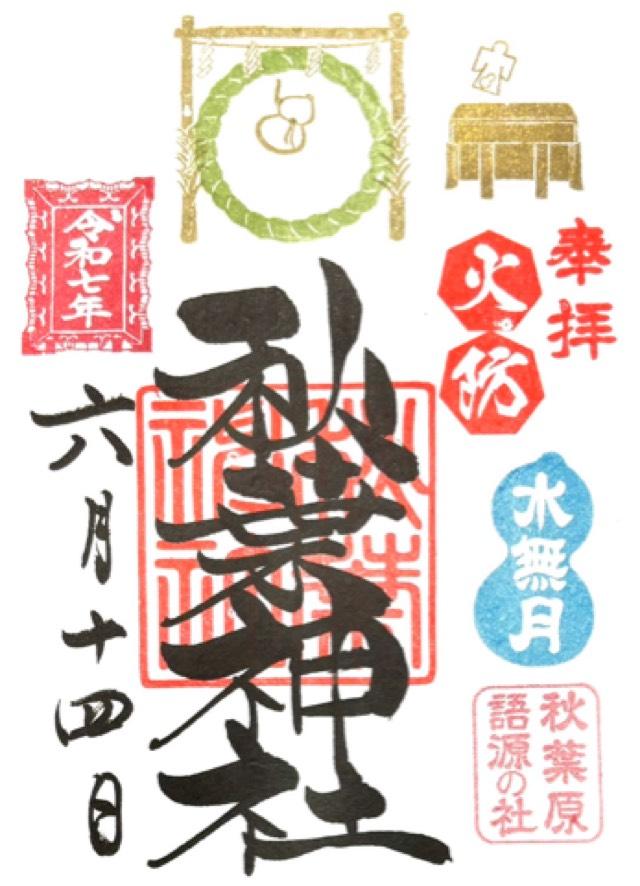 奉拝
火防
水無月
秋葉原
語源の社
秋葉神社
秋葉
神社
令和七年
六月十四日